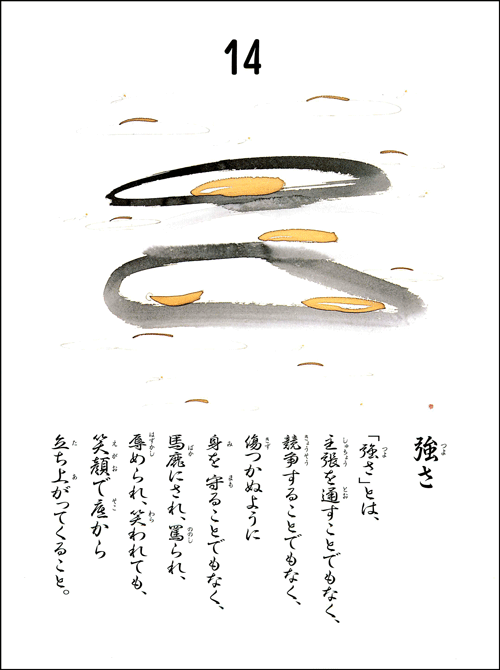 14
強さ
「強さ」とは、
主張を通すことでもなく、
競争することでもなく、
傷つかぬように
身を守ることでもなく、
馬鹿にされ、罵られ、
辱められ、笑われても、
笑顔で底から
立ち上がってくること。